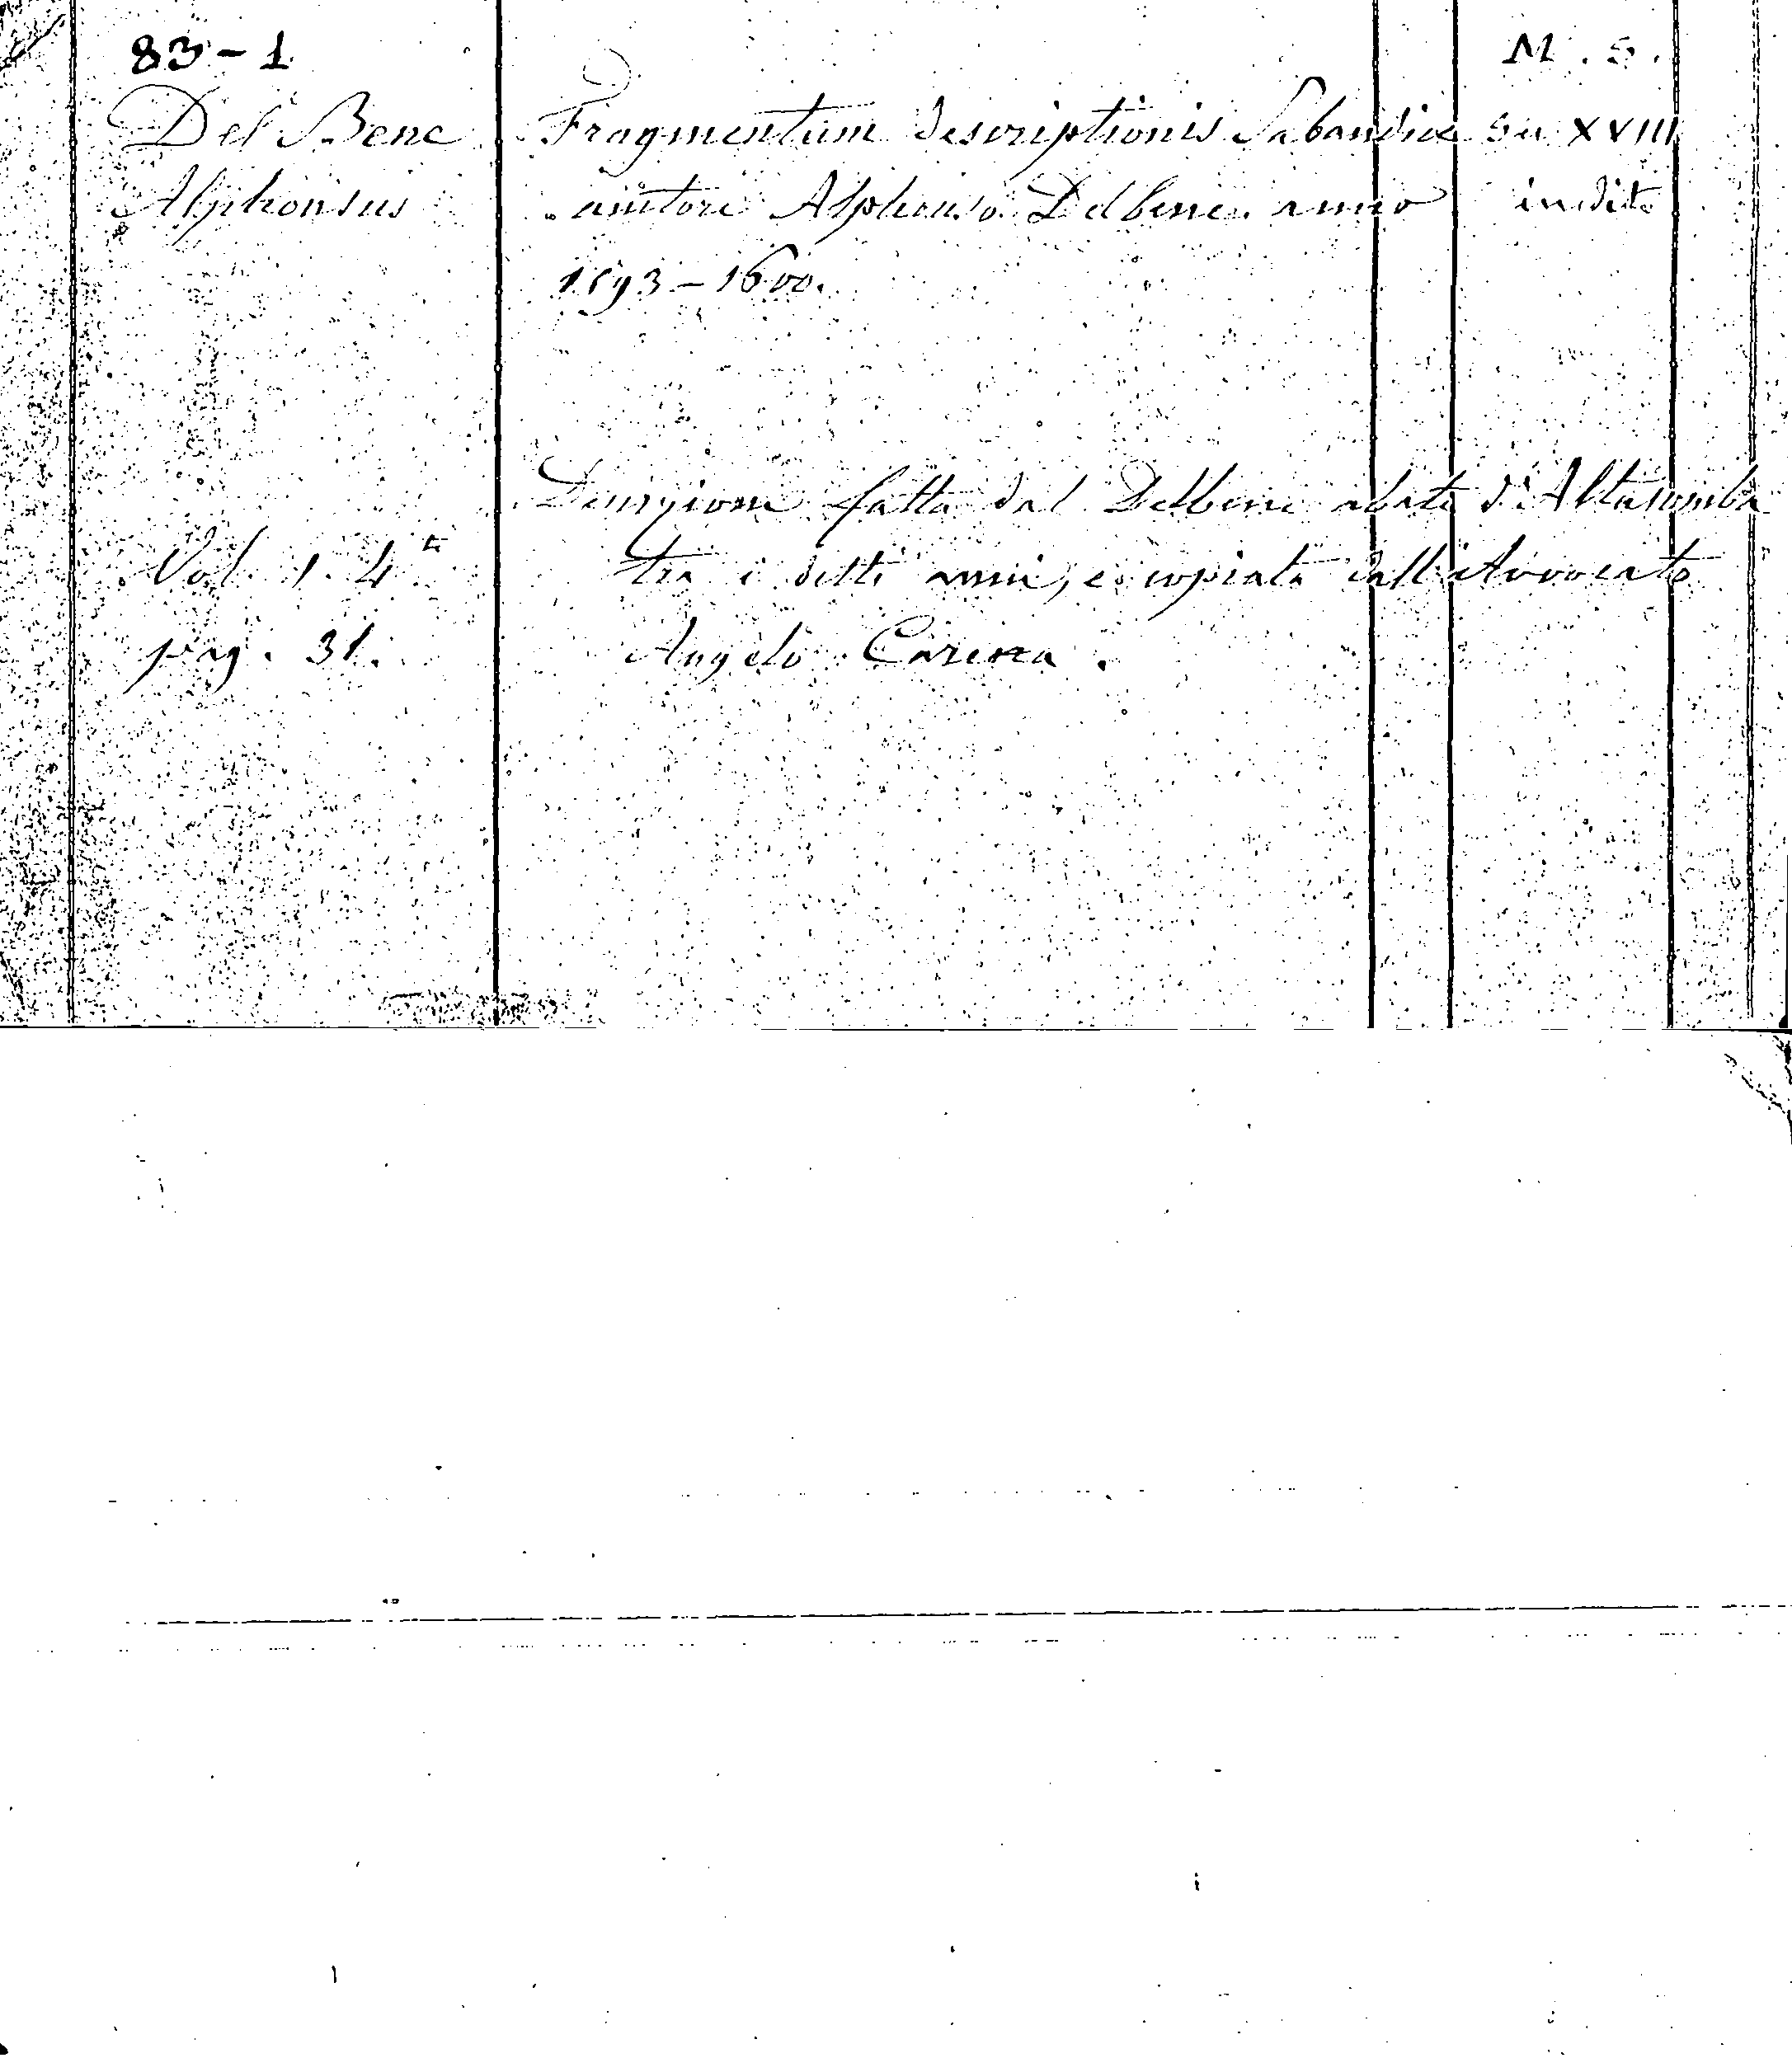 83-1 M. S.
Del Bene Fragmentum descriptionis Sabaudiae XVIII
Alphonsus auctore Alphonso Delbene anno inedito
1593-1600.
Descrizione fatta dal Delbene abate d'Altacomba
Vol. 1. 4to tra i detti anni, e copiata dall'Avvocato
pag. 31. Angelo Carena.